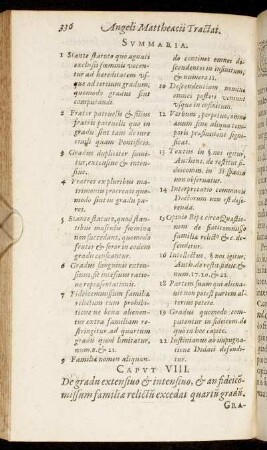 336 Angeli Matthæacii Tractat.
SVMMARIA.
1 Stante statuto quo agnati
exclusis fœminis vocentur
ad hæreditatem vsque
ad tertium gradum,
quomodo gradus sint
computandi.
2 Frater patruelis & filius
fratris patruelis quo in
gradu sint tam de iure
ciuili quam Pontificio.
3 Gradum dupliciter sumitur,
extensiue & intensiue.
4 Fratres ex pluribus matrimoniis
procreati quomodo
sint in gradu pares.
5 Stante statuto, quod stantibus
masculis fœminæ
non succedant, quomodo
frater & soror in eodem
gradu censeantur.
6 Gradus sanguinis extensiuus,
est intensiue ratione
repræsentationis.
7 Fideicommissum familiæ
relictum cum prohibitione
ne bona alienentur
extra familiam restringitur
ad quartum
gradum quod limitatur,
num. 8. & 21.
9 Familiæ nomen aliquando
continet omnes
descendentes in infinitum,
& numero 11.
10 Descendentium
omnes
vsque in infinitum.
12 Verbum, perpetuo,
annorum sine aliqua temporis
significat.
13 Textus in §. nos igitur,
Authent. de restitut. fideicommiss.
in Hispania
non obseruatur.
14 Interpretatio communis
Doctorum non est deserenda.
15 Opinio Ripæ circa Quæstionem
de fideicommisso
familiæ relicto &c. defenditur.
16 Intellectus, §. nos igitur,
Auth. de restitut. &
num. 17. 20. & 22.
18 Partem suam qui alienauit
non potest partem alterius
petere.
19 Gradus quomodo computantur
in fideicom. de
quo in hoc capite.
21 Iustinianus ab impugnatione
Didaci defenditur.
CAPVT VIII.
De gradu extensiuo & intensiuo, & an fideicõ-
missum familiæ relictũ excedat quartũ gradũ.
GRA-